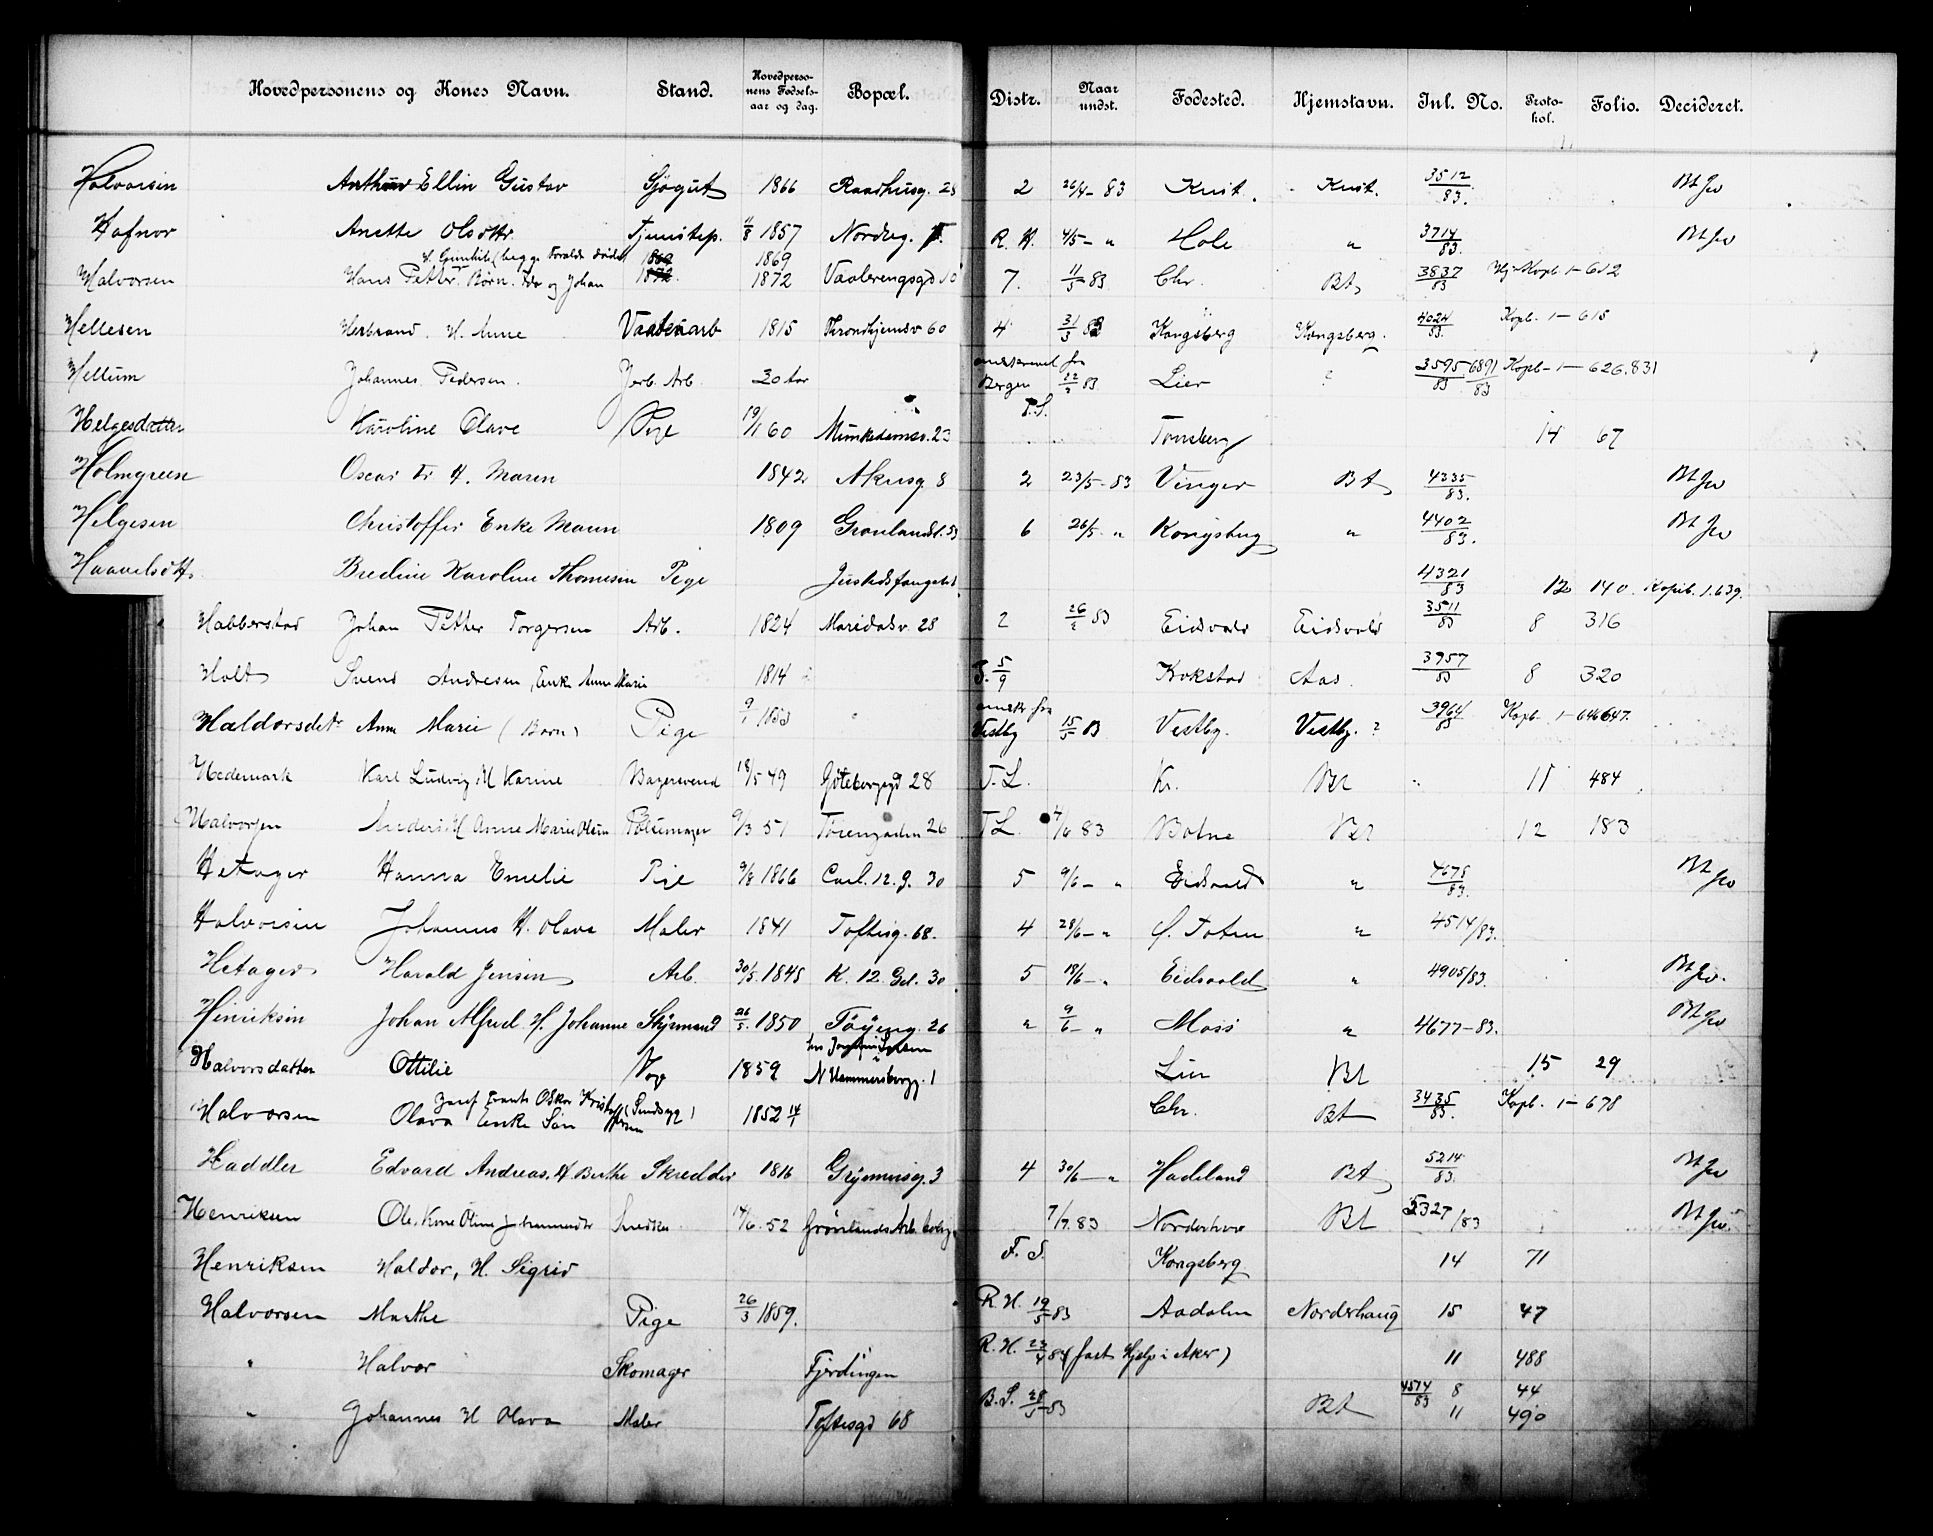 Hovedpersonens og Kones Navn. Stand. Hovedpersonens Fødselsaar og dag. Bopæl. Distr. Naar undst. Fødested. Hjemstavn. Inl. No. Protokol. Folio. Decideret.
Halvorsen Anthun Ellin Gustav Sjøgut 1866 Raadhusg. 28 2 26/4 - 83 Krist. Krist. 3512/83. Bt
Hafnor Anette Olsdttr. Tjenestep. 11/8 1857 Nordbg. R. H. 4/5 - " Hole " 3714/83. Bt
H. Gunhild (begge Forældre døde) 1869 1869
Halvorsen Hans Petter. Børn. Ida og Johan 1872. 1872 Vaalerengsgd 10 7. 11/5 83 Chr. Bt 3837/83 Hj. Kopb 1 - 612
Hellesen Herbrand. H. Anne 1815 Throndhjemsv 60 4 31/3 83 Kongsberg Kongsberg. 4024/83. Kopb. 1 - 615
Hellum Johannes Pedersen. Jerb. Arb. 30 Aar fra Bergen 22/2 83 Lier ? 3595/83 6891/83 Kopb - 1 - 626.831
Helgesdatter Karoline Olave Pige 19/1 60 Munkedamsv. 23 Tønsberg 14 67
Holmgreen Oscar Fr H. Maren 1842 Akersg. 8 2 23/5 - 83 Vinger Bt 4335/83. Bt
Helgesen Christoffer Enke Maren 1809 Grønlandsl. 53 6 26/5. " Kongsberg " 4402/83. Bt
Haavelsdttr. Bredine Karoline Thomesen Pige 4321/83 12 140. Kopib. 1.639.
Habberstad Johan Petter Torgersen Arb. 1824 Maridalsv. 28 2 26/2 83 Eidsvold Eidsvold 3511/83 8 316
Holt Svend Andresen, Enke Anne Marie 1814 5/9 Krokstad Aas. 3957/83 8 320
Haldorsdet. Anne Marie (Barn) Pige 9/1 1853 fra Vestby 15/5 83 Vestby. Vestby. ? 3964/83 Kopb. 1 - 646 647.
Hedemark Karl Ludvig H Karine Bayersvend 18/5 49 Gøteborggd 28 T. L. Kr. Bt 11 484
Halvorsen Anders H Anne Marie Olsen Pølsemager 9/3 51 Torvengaden 26 T L. 4/6 83 Botne Bt 12 183
Hetager Hanna Emelie Pige 9/8 1866 Carl. 12. g. 30 5 9/6 - " Eidsvold " 4678/83. Bt
Halvorsen Johannes H. Olava Maler 1841 Toftesg. 68. 4 28/6 - " Ø. Toten " 4514/83.
Hetager Harald Jensen Arb. 30/5. 1848 K. 12. Gd. 30 5 18/6 - " Eidsvold " 4905/83. Bt
Hinriksen Johan Alfred H. Johanne Styrmand 26/5. 1850 Tøyeng. 26 " 9/6 - " Moss " 4677 - 83. Bt
Halvorsdatter Ottilie 1859 N Hammersborgg. 1 Lier Bt 15 29
Josef Frants Oskar Kristoffersen
Halvorsen Olava Enke Søn 1852 14/1 Chr. Bt 3435/83. Kopb. 1 - 678
Haddler Edvard Andreas. H. Berthe Skredder 1816 Grønnersg. 3 4 30/6 - " Hadeland Bt 5214/83. Bt
Henriksen Ole. Kone Oline Snedker 14/6. 52 Grønlands Arb. bolig. 7/7. 83 Norderhov Bt 5327/83 Bt
Henriksen Haldor, H. Sigrid F. S. Kongsberg 14 71
Halvorsen Marthe Pige 26/3 1859. R. H. 19/5 83 Aadalen Norderhaug 15 47
" Halvor Skomager Fjerdingen R. H. 23/4 83 (fast Hjælp i Aker) 11 488
" Johannes H Olava Maler Toftesgd 68 B. S. 28/5 83 Bt 4514/83 8 44
11 490